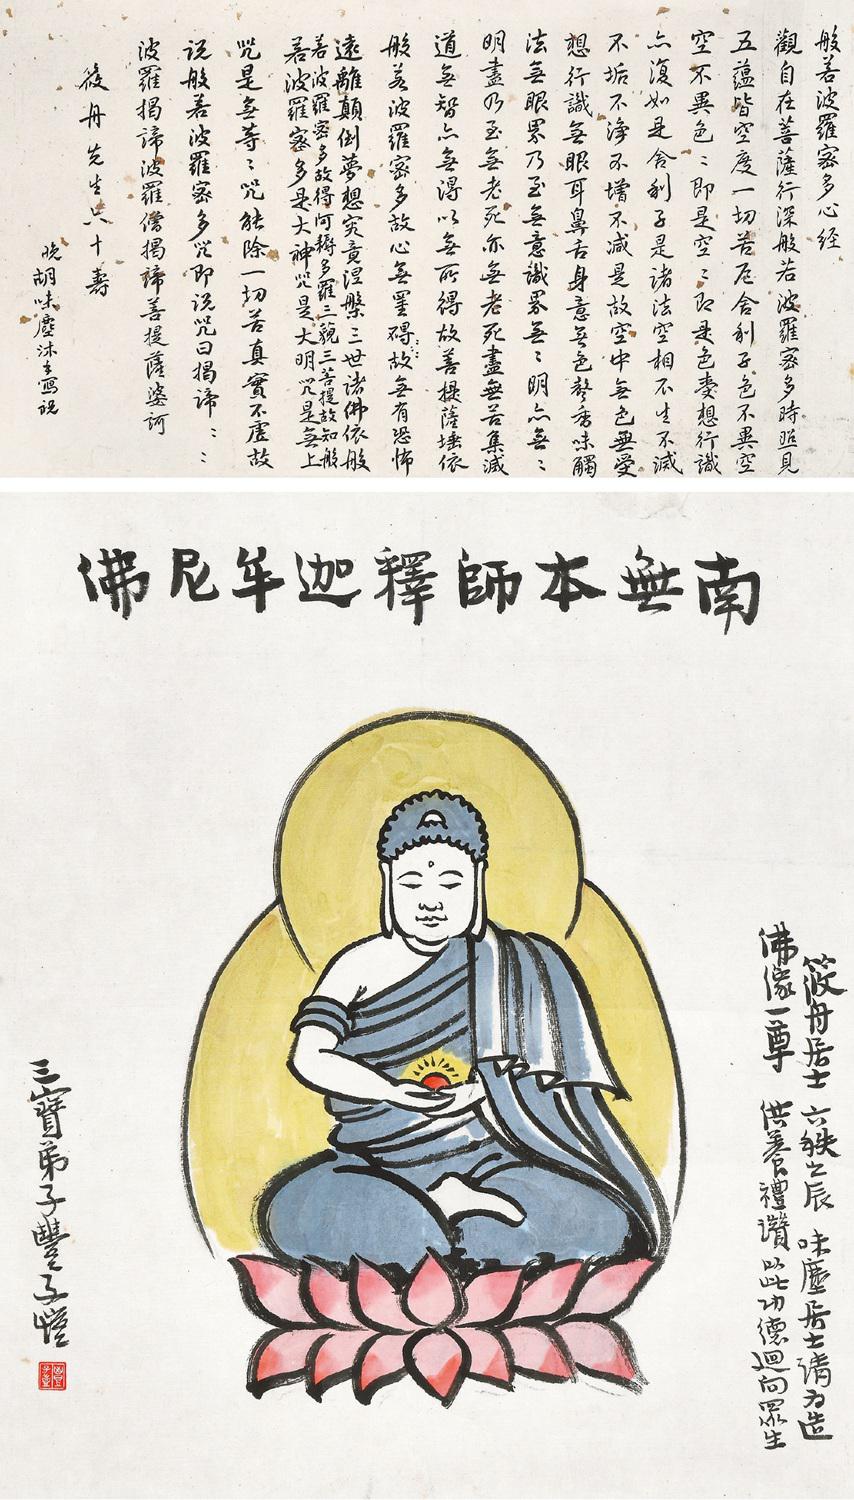 般若波羅密多心經
觀自在菩薩行深般若波羅密多時照見
五蘊皆空度一切苦厄舍利子色不異空
空不異色〻即是空〻即是色受想行識
亦復如是舍利子是諸法空相不生不滅
不垢不淨不增不減是故空中無色無受
想行識無眼耳鼻舌身意無色聲香味觸
法無眼界乃至無意識界無〻明亦無〻
明盡乃至無老死亦無老死盡無苦集滅
道無智亦無得以無所得故菩提薩埵依
般若波羅密多故心無罣礙故無有恐怖
遠離顛倒夢想究竟涅槃三世諸佛依般
若波羅密多故得阿耨多羅三藐三菩提故知般
若波羅密多是大神咒是大明咒是無上
咒是無等〻咒能除一切苦真實不虛故
說般若波羅密多咒即說咒曰揭諦〻〻
波羅揭諦波羅僧揭諦菩提薩婆訶
筱舟先生六十壽
晚胡味塵沐手寫祝
南無本師釋迦牟尼佛
筱舟居士六秩之辰味塵居士請為造
佛像一尊供養禮讚以此功德迴向眾生
三寶弟子豐子愷